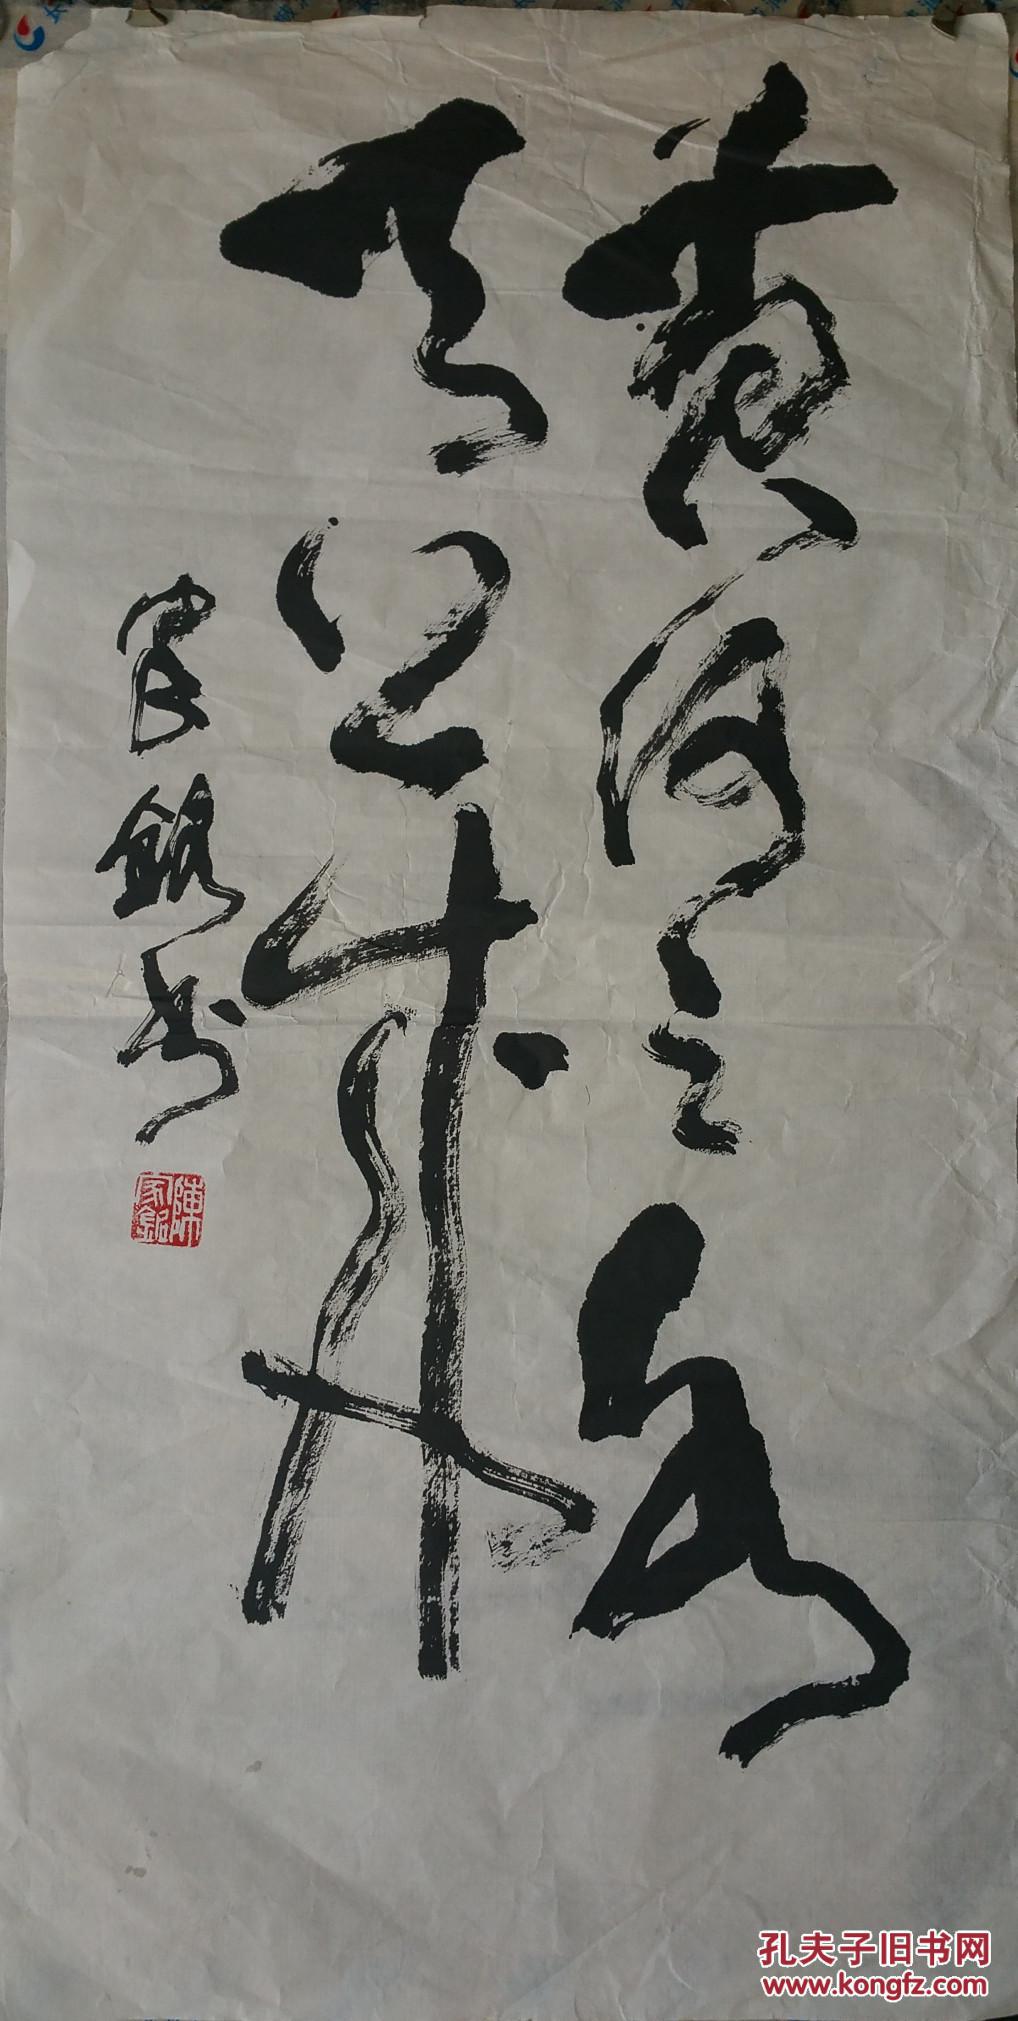 黄河之水
天上来
家铭书
陳家銘
孔夫子旧书网
www.kongfz.com